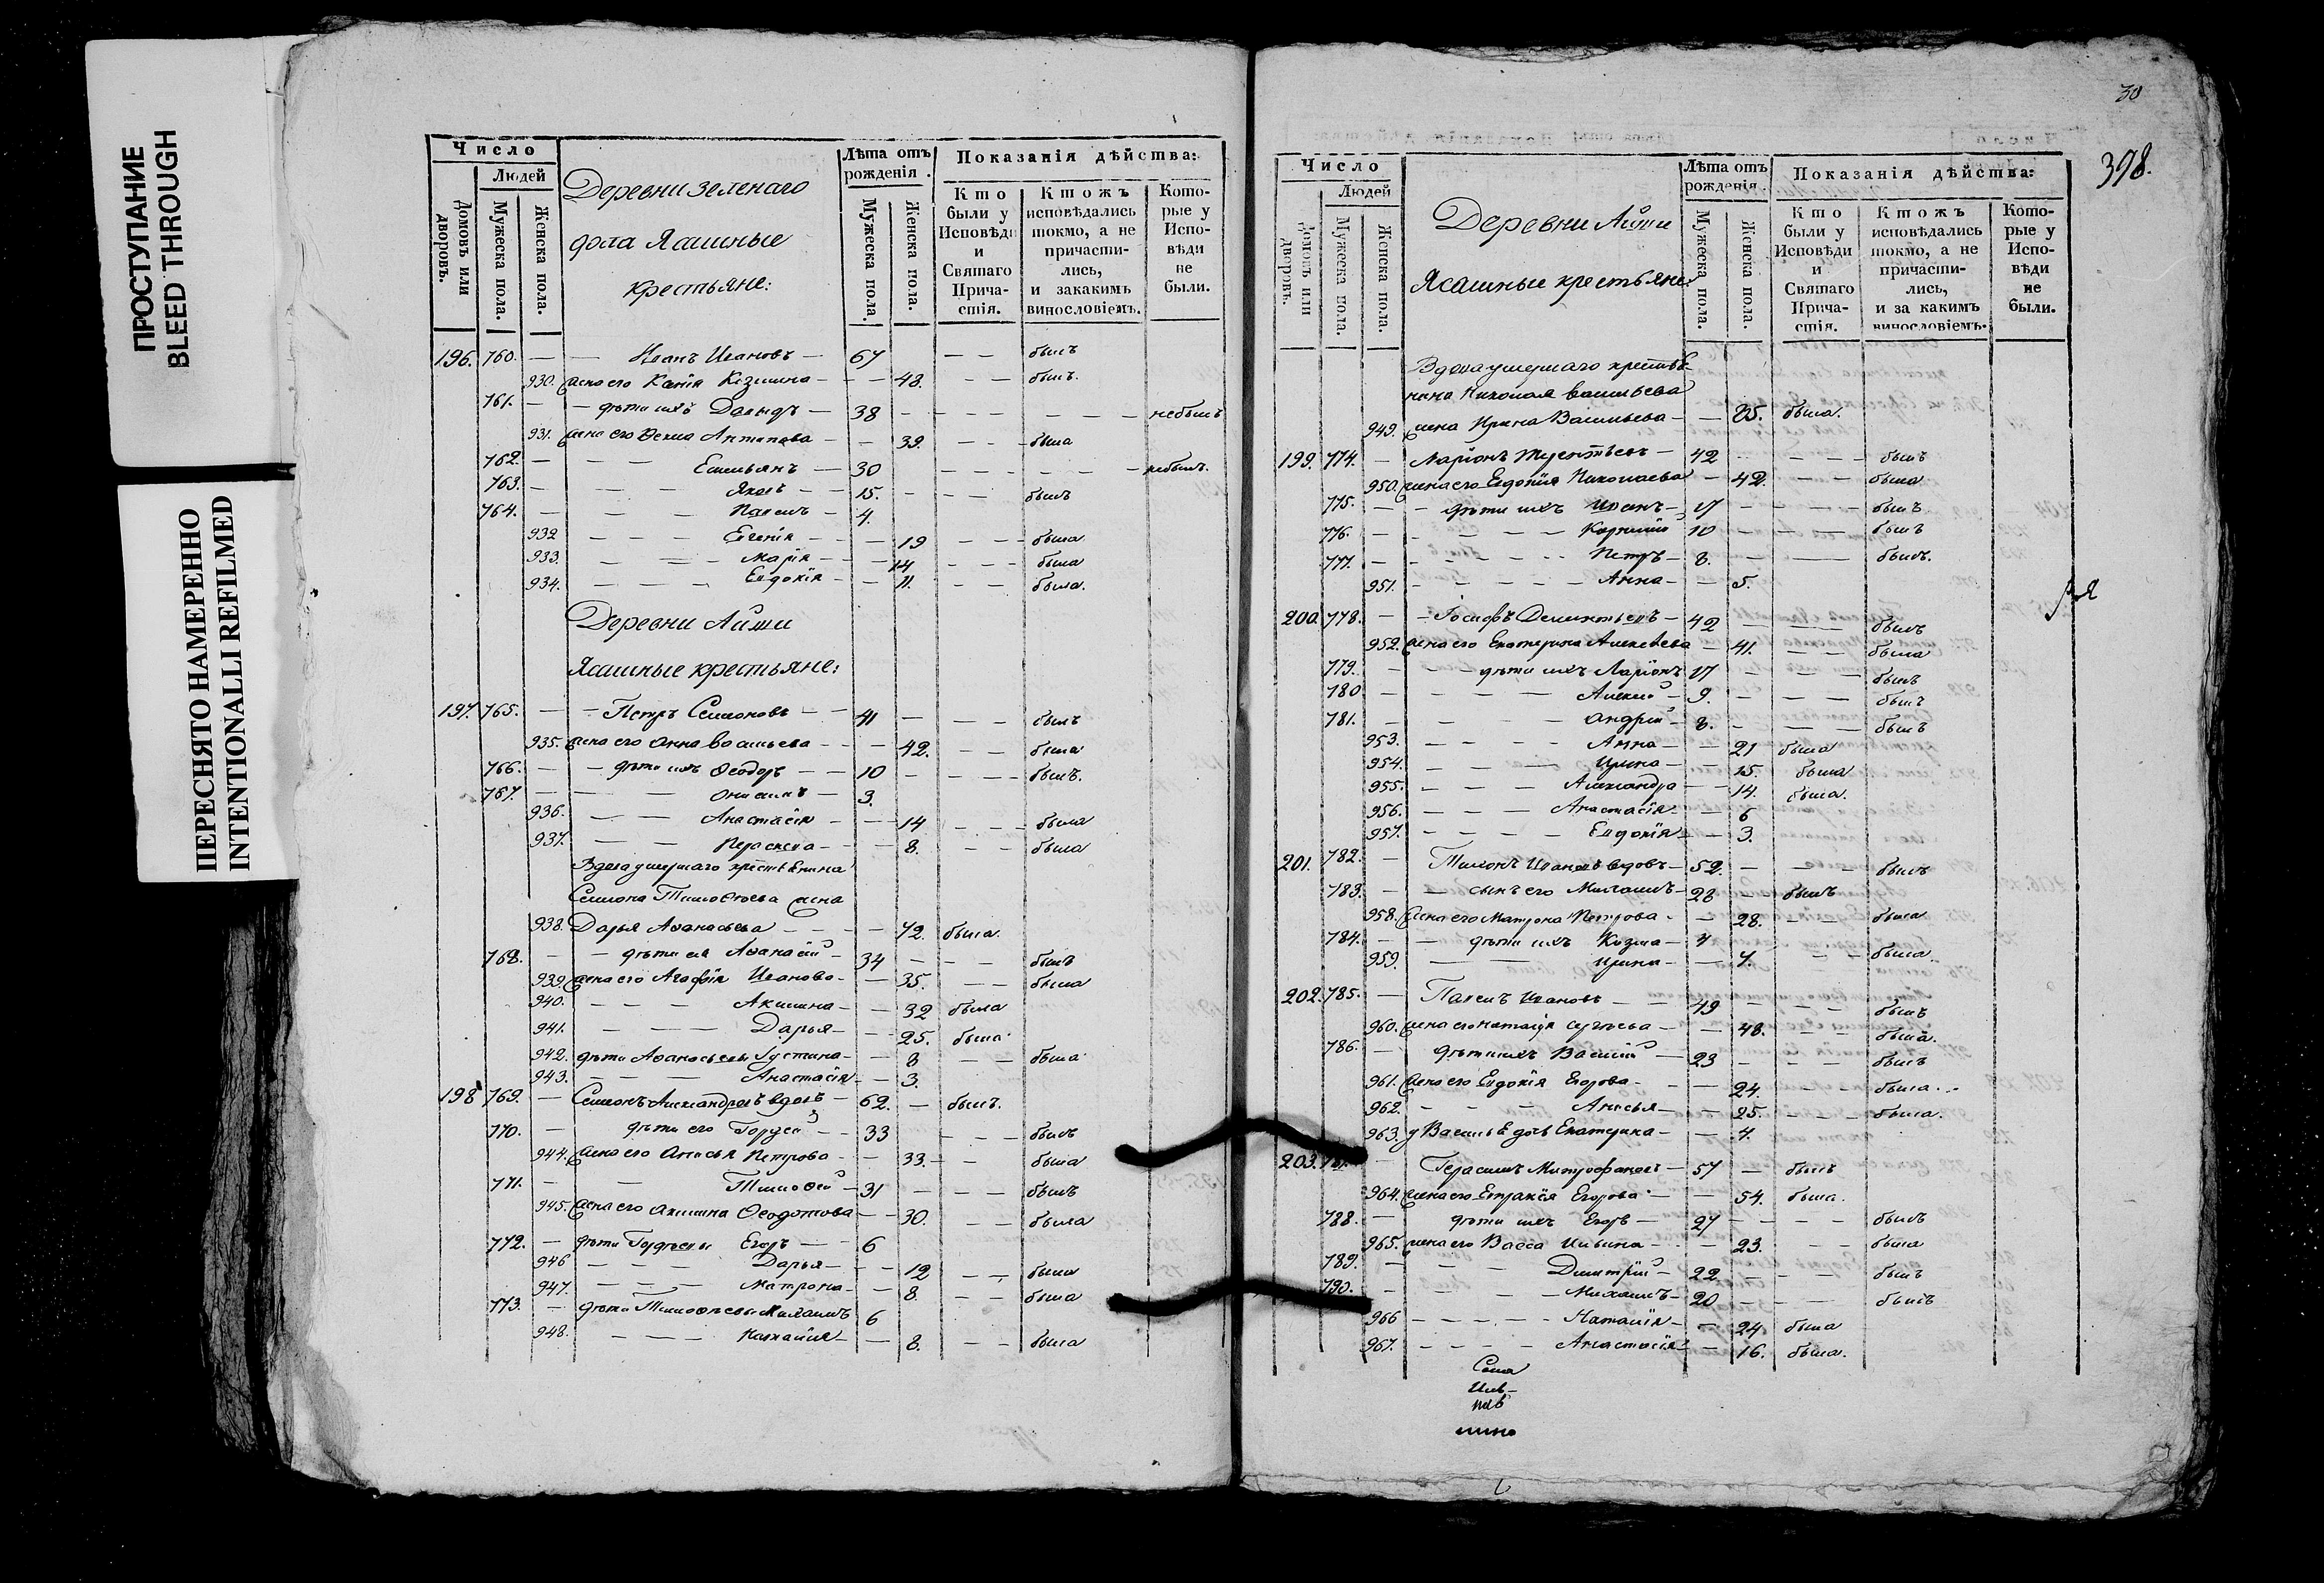 ПРОСТУПАНИЕ
BLEED THROUGH
ПЕРЕСНЯТО НАМЕРЕННО
INTENTIONALLI REFILMED
Число
Людей
Домовъ или дворовъ.
Мужеска пола.
Женска пола.
Деревни Зеленаго
дола Ясашные
крестьяне:
Лѣта отъ рожденія.
Мужеска пола.
Женска пола.
Показанія дѣйства:
Кто были у Исповѣди и Святаго Причастія.
Ктожъ исповѣдались токмо, а не причастились, и закакимъ винословіемъ.
Которые у Исповѣди не были.
196. 760. — — Иванъ Ивановъ — 67 — — былъ
930. жена его Козмина — — 48. — — былъ.
761. — — дѣти ихъ Давыдъ — 38 — — — — — — — небылъ
931. жена его Антипова — — 39. — — была
762. — — — Емельянъ — 30 — — — — — — небылъ.
763. — — — Яковъ — — 15. — — — былъ
764. — — — Павелъ — 4.
932 — — — Евгенія — — 19 — — была
933. — — — Марія — — 14 — — — была
934. — — — Евдокія — — 11. — — была.
Деревни Айши
Ясашные крестьяне:
197. 765. — — Петръ Семеновъ — — 41 — — — былъ
935. жена его Анна Васильева — — — 42. — — была
766. — — дѣти ихъ Ѳеодоръ — — 10 — — — — былъ.
767. — — — Онисимъ — 3.
936. — — Анастасія — — 14 — — — была
937. — — Параскева — — — 8. — — была
Вдова умершаго крестьянина
Семена Тимоѳеева жена
938. Дарья Аѳанасьева — — — 72. была
768. — — дѣти ея Аѳанасій — 34 — — — былъ
939. жена его Агафія Иванова — — 35. — — была
940. — — — Акилина — — 32 была
941. — — — Дарья — — 25. была
942. дѣти Аѳанасьевы Іустина — — 8 — — была
943. — — — Анастасія — — 3.
198 769. — Семенъ Александровъ вдовъ — 62. — былъ.
770. — дѣти его Гордѣй — — 33 — — — былъ
944. жена его Анисья Петрова — — 33. — — была
771. — — Тимоѳей — 31 — — — былъ
945. жена его Акилина Ѳеодотова — — 30. — — была
772. — дѣти Гордѣевы Егоръ — — 6
946 — — — Дарья — — — 12 — — была
947. — — — Матрона — — 8. — — была
773. — дѣти Тимоѳеевы 6
948. — — — Наталія — — 8. — — была
30
398.
Число
Людей
Домовъ или дворовъ.
Мужеска пола.
Женска пола.
Деревни Айши
Ясашные крестьяне:
Лѣта отъ рожденія.
Мужеска пола.
Женска пола.
Показанія дѣйства:
Кто были у Исповѣди и Святаго Причастія.
Ктожъ исповѣдались токмо, а не причастились, и за какимъ винословіемъ.
Которые у Исповѣди не были.
Вдова умершаго крестья-
нина Николая Васильева
949. жена Ирина Васильева — — 85. была.
199. 774. — Ларіонъ — 42 — — — былъ
950. жена его Евдокія Николаева — 42. — — была
775. — — дѣти ихъ Иванъ — 17 — — — — былъ
776. — — — — — 10 — — — былъ
777. — — — — — Петръ — 8. — — былъ.
951. — — — — — Анна — — 5.
200. 778. — — Іосифъ Дементьевъ — 42 — — — былъ
952. жена его Екатерина Алексѣева — 41. — — была
779. — — — дѣти ихъ Ларіонъ 17 — — — — былъ
780 — — — — Алексій — 9. — — — былъ
781. — — — — Андрей — 8. — — — былъ
953. — — — — Анна — — 21 была
954. — — — — Ирина — — 15. была
955. — — — Александра — — 14. была.
956. — — — Анастасія — — 6
957. — — — — Евдокія — — 3.
201. 782. — Тимонъ Ивановъ вдовъ — 52. — — — былъ
783. — — сынъ его — 28 — былъ
958. жена его Матрона Петрова — — 28. — — была
784. — — дѣти ихъ Козма — 4
959. — — Ирина — — 7. — — была.
202. 785. — Павелъ Ивановъ — — 49 — — — былъ
960. жена его Наталія — — 48. — — была.
786. — дѣти ихъ Василій — 23 — — — былъ
961. жена его Евдокія Егорова — — — 24. — — была.
962. — — — Анисья — — 25. — — — была.
963. у Василья дочь Екатерина — — 4.
203. Герасимъ Митрофановъ — 57 — былъ
964. жена его Егорова — — 54. была.
788. — дѣти ихъ Егоръ — 27 — — — — былъ
965. жена его Васса Ильина — — — 23. — — была
789. — — — Димитрій — 22 — — — былъ
790. — — — — Михаилъ — 20 — — — былъ
966 — — — — — Наталія — — 24 была
967. — — — — Анастасія — — 16. была.